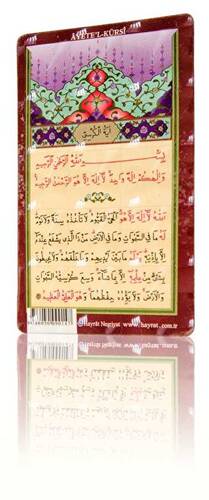 ÂYETE'L-KÜRSÎ
اٰيَةُ الْكُرْسِيِّ
بِسْمِ اللّٰهِ الرَّحْمٰنِ الرَّحِيمِ
وَاِلٰهُكُمْ اِلٰهٌ وَاحِدٌ لَٓا اِلٰهَ اِلَّا هُوَ الرَّحْمٰنُ الرَّحِيمُ
اَللّٰهُ لَٓا اِلٰهَ اِلَّا هُوَ اَلْحَيُّ الْقَيُّومُ لَا تَأْخُذُهُ سِنَةٌ وَلَا نَوْمٌ
لَهُ مَا فِي السَّمٰوَاتِ وَمَا فِي الْاَرْضِ مَنْ ذَا الَّذِي يَشْفَعُ عِنْدَهُ
اِلَّا بِاِذْنِهِ يَعْلَمُ مَا بَيْنَ اَيْدِيهِمْ وَمَا خَلْفَهُمْ وَلَا يُحِيطُونَ
بِشَيْءٍ مِنْ عِلْمِهِ اِلَّا بِمَا شَٓاءَ وَسِعَ كُرْسِيُّهُ السَّمٰوَاتِ
وَالْاَرْضَ وَلَا يَؤُدُهُ حِفْظُهُمَا وَهُوَ الْعَلِيُّ الْعَظِيمُ
Hayrât Neşriyat www.hayrat.com.tr